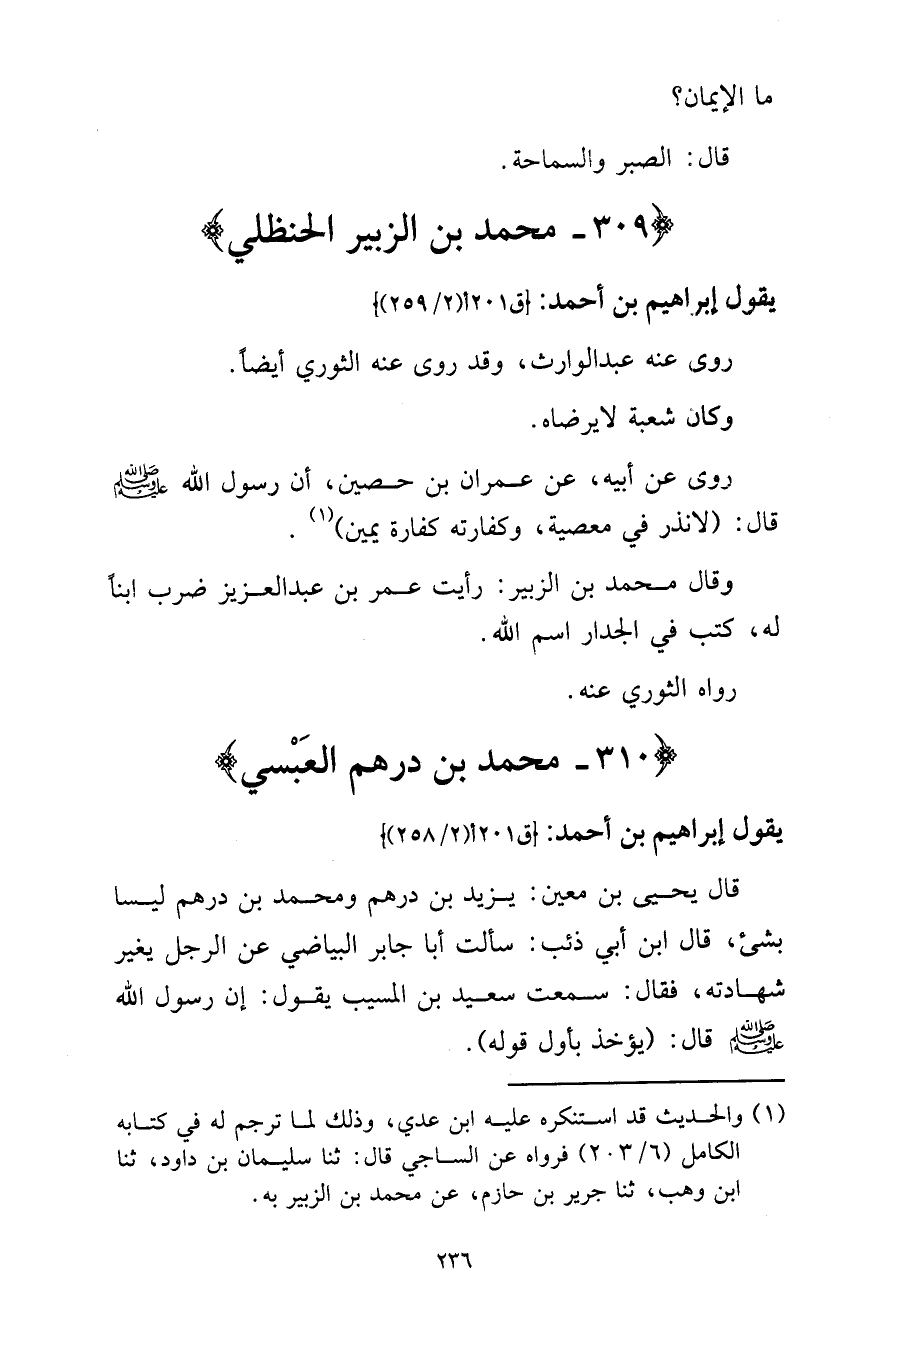 ما الإيمان؟
قال: الصبر والسماحة.
﴿٣٠٩ - محمد بن الزبير الحنظلي﴾
يقول إبراهيم بن أحمد: {ق٢٠١أ(٢/ ٢٥٩)}
روى عنه عبدالوارث، وقد روى عنه الثوري أيضاً.
وكان شعبة لايرضاه.
روى عن أبيه، عن عمران بن حصين، أن رسول الله ﷺ
قال: (لانذر في معصية، وكفارته كفارة يمين)(١) .
وقال محمد بن الزبير: رأيت عمر بن عبدالعزيز ضرب ابناً
له، كتب في الجدار اسم الله.
رواه الثوري عنه.
﴿٣١٠ - محمد بن درهم العَبْسي﴾
يقول إبراهيم بن أحمد: {ق٢٠١أ(٢/ ٢٥٨)}
قال يحيى بن معين: يزيد بن درهم ومحمد بن درهم ليسا
بشئ، قال ابن أبي ذئب: سألت أبا جابر البياضي عن الرجل يغير
شهادته، فقال: سمعت سعيد بن المسيب يقول: إن رسول الله
ﷺ قال: (يؤخذ بأول قوله).
(١) والحديث قد استنكره عليه ابن عدي، وذلك لما ترجم له في كتابه
الكامل (٦/ ٢٠٣) فرواه عن الساجي قال: ثنا سليمان بن داود، ثنا
ابن وهب، ثنا جرير بن حازم، عن محمد بن الزبير به.
٢٣٦